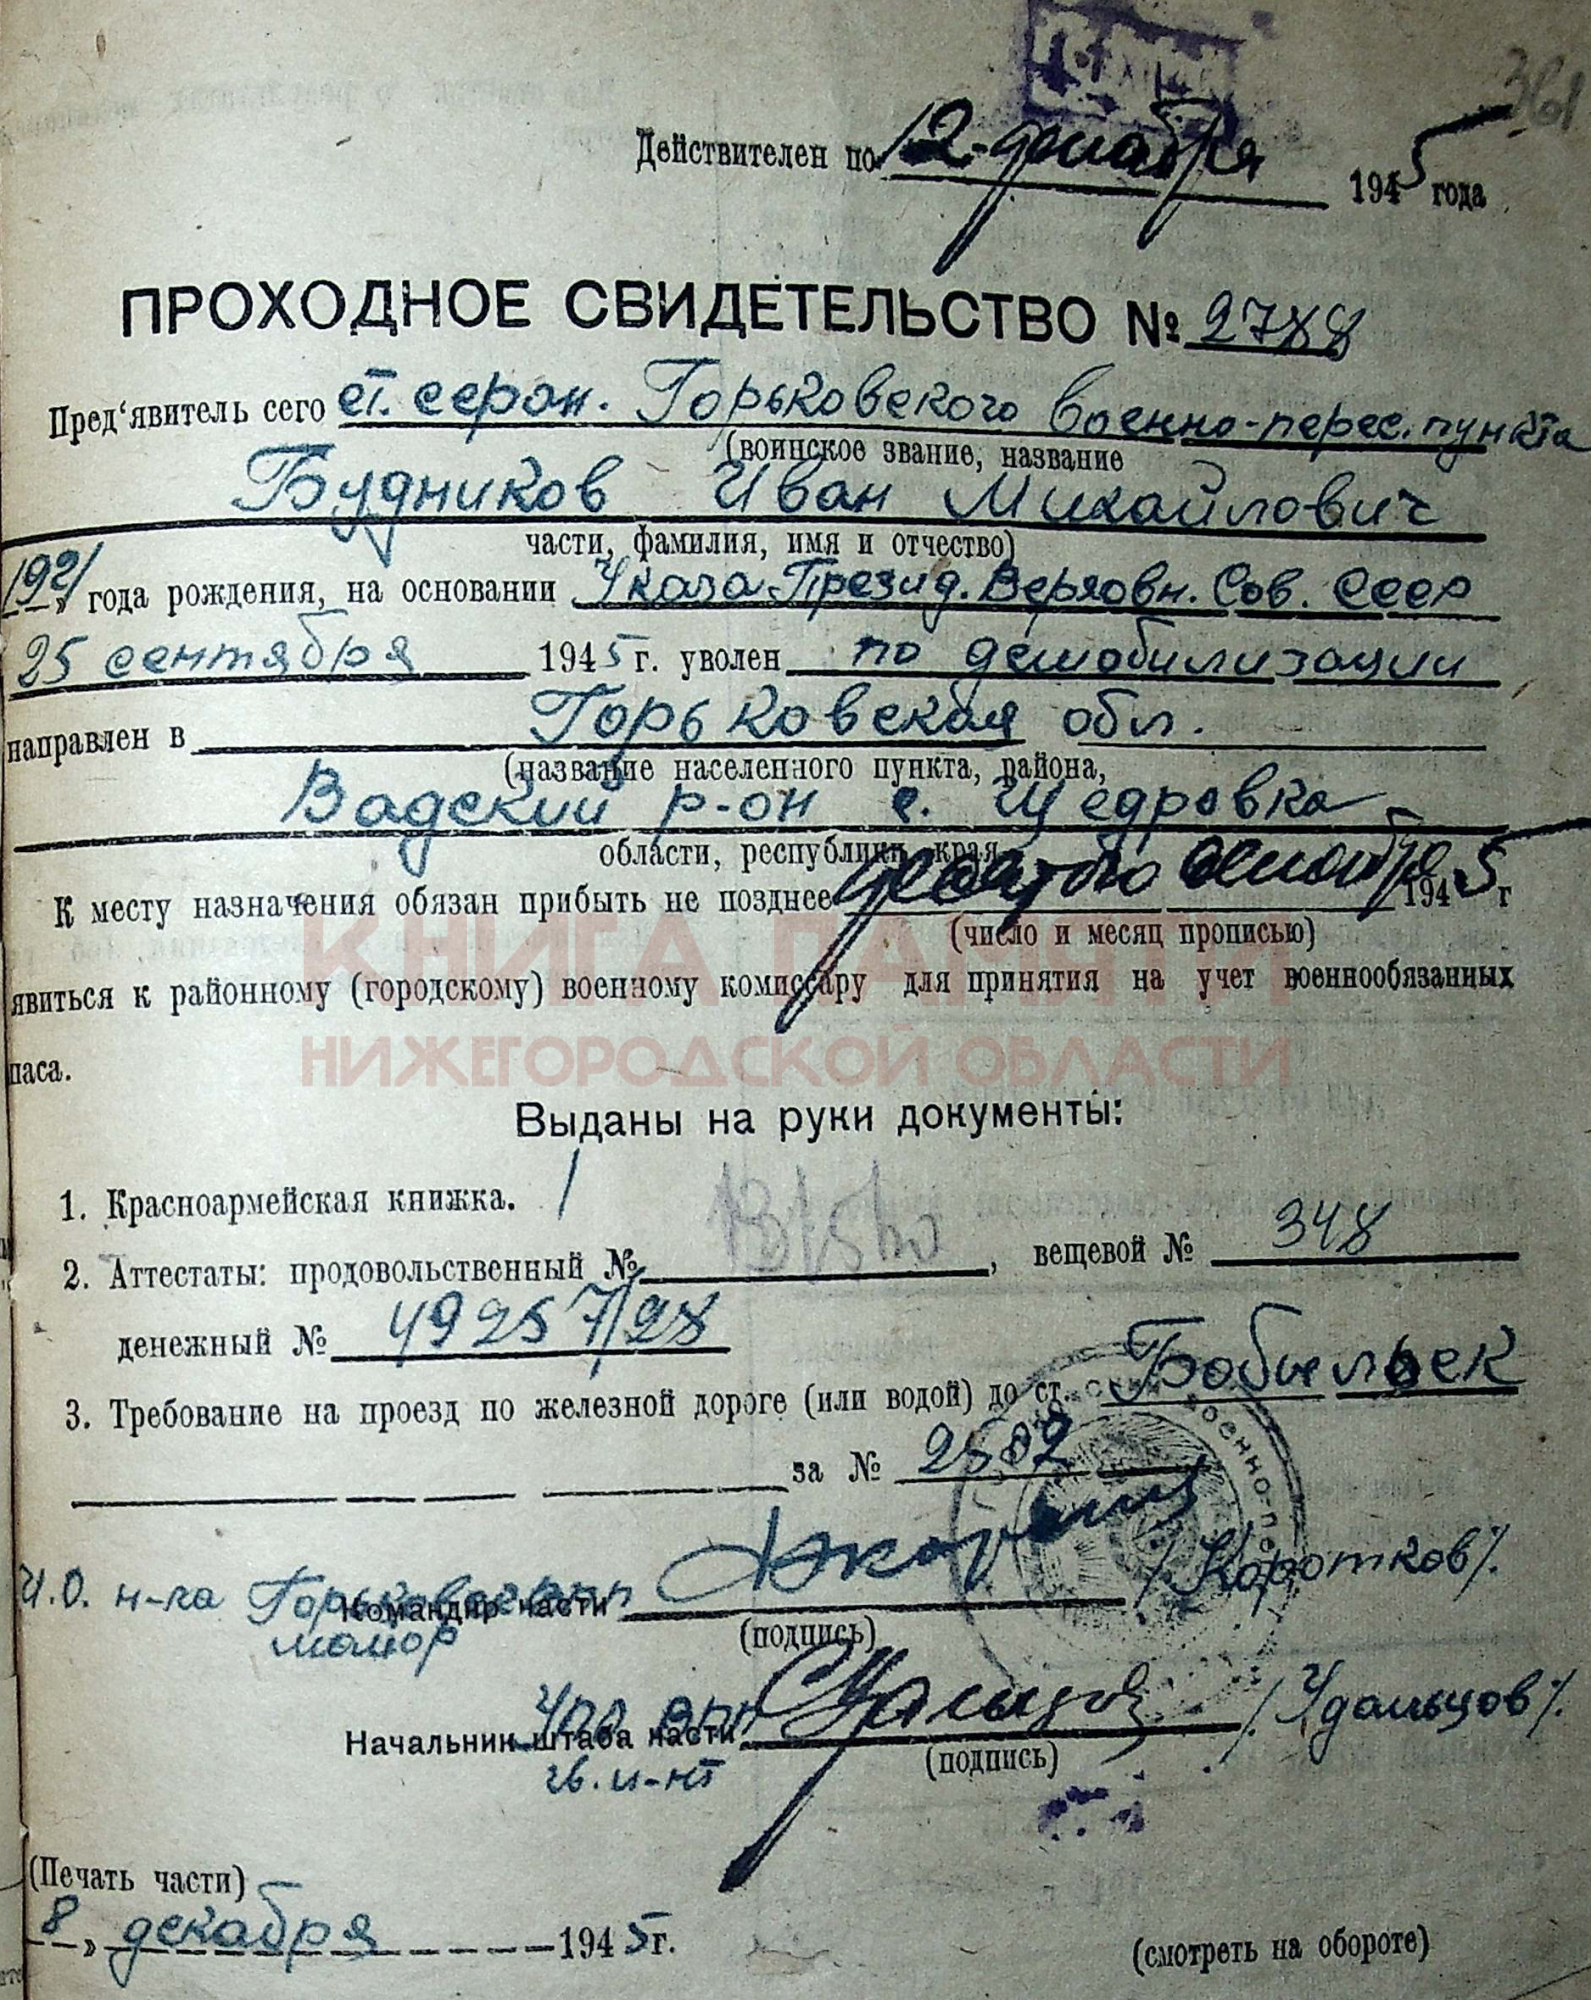 361
Действителен по 12 декабря 1945 года
ПРОХОДНОЕ СВИДЕТЕЛЬСТВО № 2788
Пред‘явитель сего ст. серж. Горьковского военно-перес. пункта
(воинское звание, название
Будников Иван Михайлович
части, фамилия, имя и отчество)
1921 года рождения, на основании Указа Презид. Верховн. Сов. СССР
25 сентября 1945 г. уволен по демобилизации
направлен в Горьковская обл.
(название населенного пункта, района,
Вадский р-он с. Щедровка
области, республики, края
К месту назначения обязан прибыть не позднее 1945 г
(число и месяц прописью)
явиться к районному (городскому) военному комиссару для принятия на учет военнообязанных
паса.
КНИГА ПАМЯТИ
НИЖЕГОРОДСКОЙ ОБЛАСТИ
Выданы на руки документы:
1. Красноармейская книжка. /
2. Аттестаты: продовольственный №, вещевой № 348
денежный № 499257/28
3. Требование на проезд по железной дороге (или водой) до ст. Бобыльск
за № 2502
И.О. н-ка Горьковского впп
Командир части /Коротков/.
майор (подпись)
Начальник штаба части /Удальцов/.
гв. и-нт (подпись)
(Печать части)
8 » декабря 1945 г.
(смотреть на обороте)